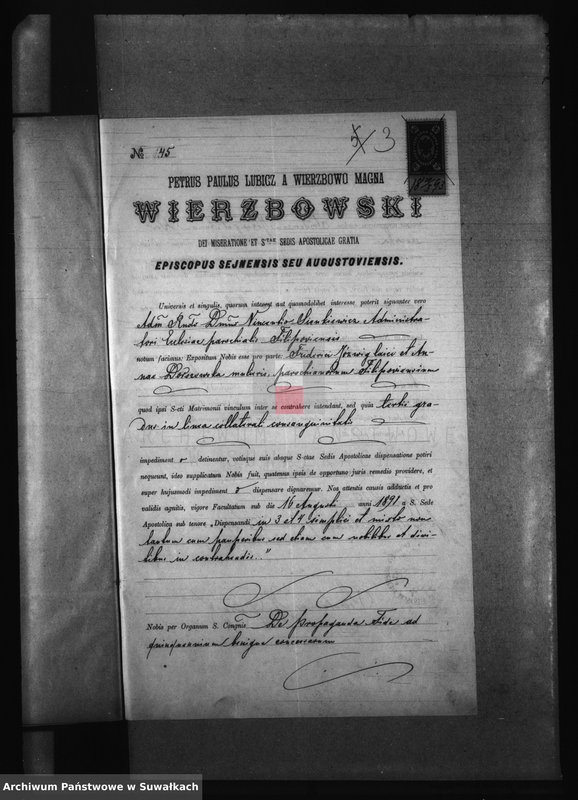 № 45
5 3
187
PETRUS PAULUS LUBICZ A WIERZBOWO MAGNA
WIERZBOWSKI
DEI MISERATIONE ET STAE SEDIS APOSTOLICAE GRATIA
EPISCOPUS SEJNENSIS SEU AUGUSTOVIENSIS.
Universis et singulis, quorum interest aut quomodolibet interesse, poterit signanter vero
Adm Rndo Dmno Vincentio Sienkiewicz Administra-
tori Eclesiae parochialis Filipoviensis
notum facimus: Expositum Nobis esse pro parte: Friderici Jozwig laici et An-
nae mulieris, parochianorum Filipoviensium
quod ipsi S-cti Matrimonii vinculum inter se contrahere intendant, sed quia tertio gra-
du in linea collaterali consanguinitatis
impedimento detinentur, votisque suis absque S-ctae Sedis Apostolicae dispensatione potiri
nequeunt, ideo supplicatum Nobis fuit, quatenus ipsis de opportuno juris remedio providere, et
super hujusmodi impedimento dispensare dignaremur. Nos attentis causis adductis et pro
validis agnitis, vigore Facultatum sub die 16 Augusti anni 1871 a S. Sede
Apostolica sub tenore „Dispensandi in 3 et 4 simplici et mixto non
tantum cum pauperibus sed etiam cum nobilibus et divi-
tibus in contrahendis.."
Nobis per Organum S. Congnis De propaganda Fide ad
quinquennium benigne concessarum
Archiwum Państwowe w Suwałkach